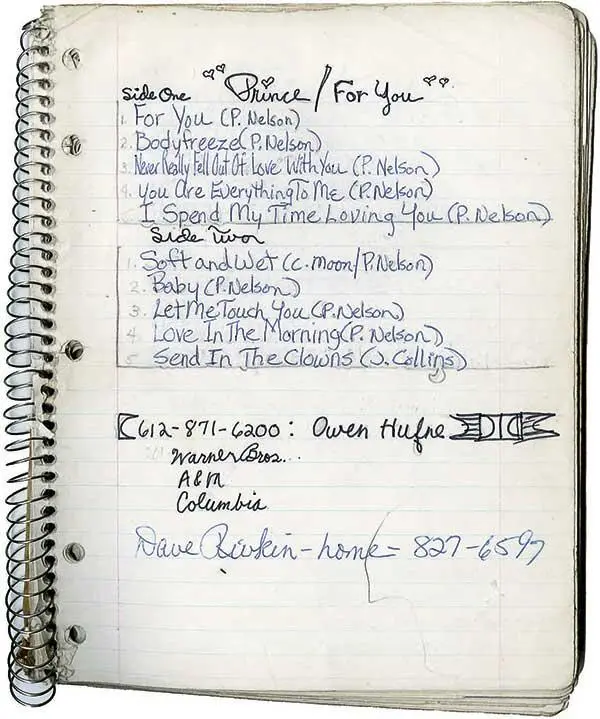 Side One "Prince / For You"
1. For You (P. Nelson)
2. Bodyfreeze (P. Nelson)
3. Never Really Fell Out Of Love With You (P. Nelson)
4. You Are Everything To Me (P. Nelson)
I Spend My Time Loving You (P. Nelson)
Side Two
1. Soft and Wet (C. Moon/P. Nelson)
2. Baby (P. Nelson)
3. Let Me Touch You (P. Nelson)
4. Love In The Morning (P. Nelson)
5. Send In The Clowns (J. Collins)
612-871-6200: Owen Hufne
Warner Bros...
A&M
Columbia
Dave Rivkin - home = 827-6597